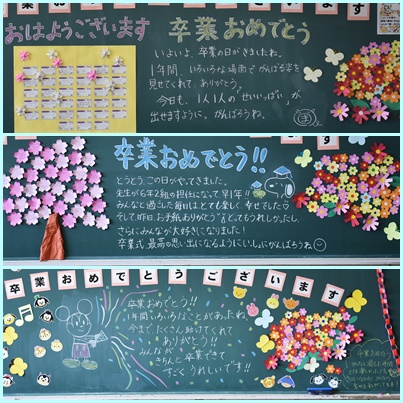 おはようございます
卒業おめでとう
いよいよ、卒業の日がきまたね。
1年間、いろいろな場面でがんばる姿を
見せてくれて、ありがとう。
今日も、1人1人の"せいいっぱい"が
出せますように。がんばろうね。
卒業おめでとう!!
とうとう、この日がやってきました。
先生が6年2組の担任になって、早1年!!
みんなと過ごした毎日はとても楽しく幸せでした
そして、昨日、お手紙ありがとう。とってもうれしかったし、
さらにみんなが大好きになりました!
卒業式、最高の思い出になるようにいっしょにがんばろうね
卒業おめでとうございます
卒業おめでとう!!
1年間いろいろなことがあったね。
今まで、たくさん助けてくれて
ありがとう!!
みんなが
きちんと卒業できて
すごくうれしいです!!